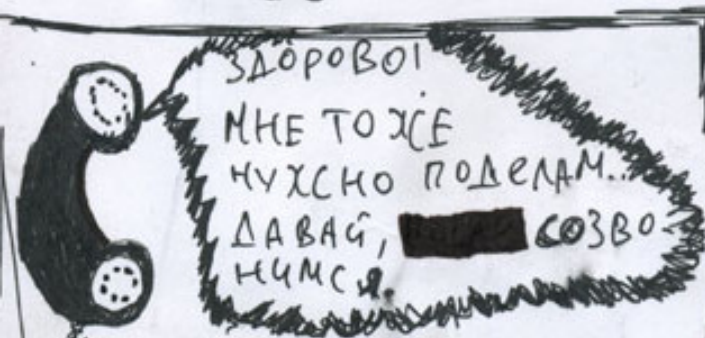 ЗДОРОВО!
МНЕ ТОЖЕ
НУЖНО ПОДЕЛАМ...
ДАВАЙ, СОЗВО-
НИМСЯ.